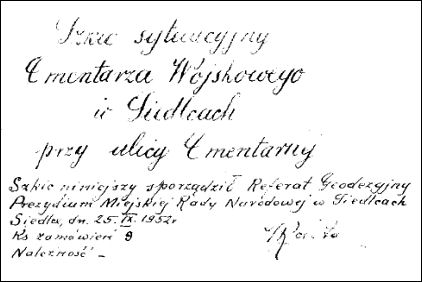 Szkic sytuacyjny
Cmentarza Wojskowego
w Siedlcach
przy ulicy Cmentarnej
Szkic niniejszy sporządził Referat Geodezyjny
Prezydium Miejskiej Rady Narodowej w Siedlcach
Siedlce, dn. 25.IX.1952r
Ks zamówień 9
Należność –